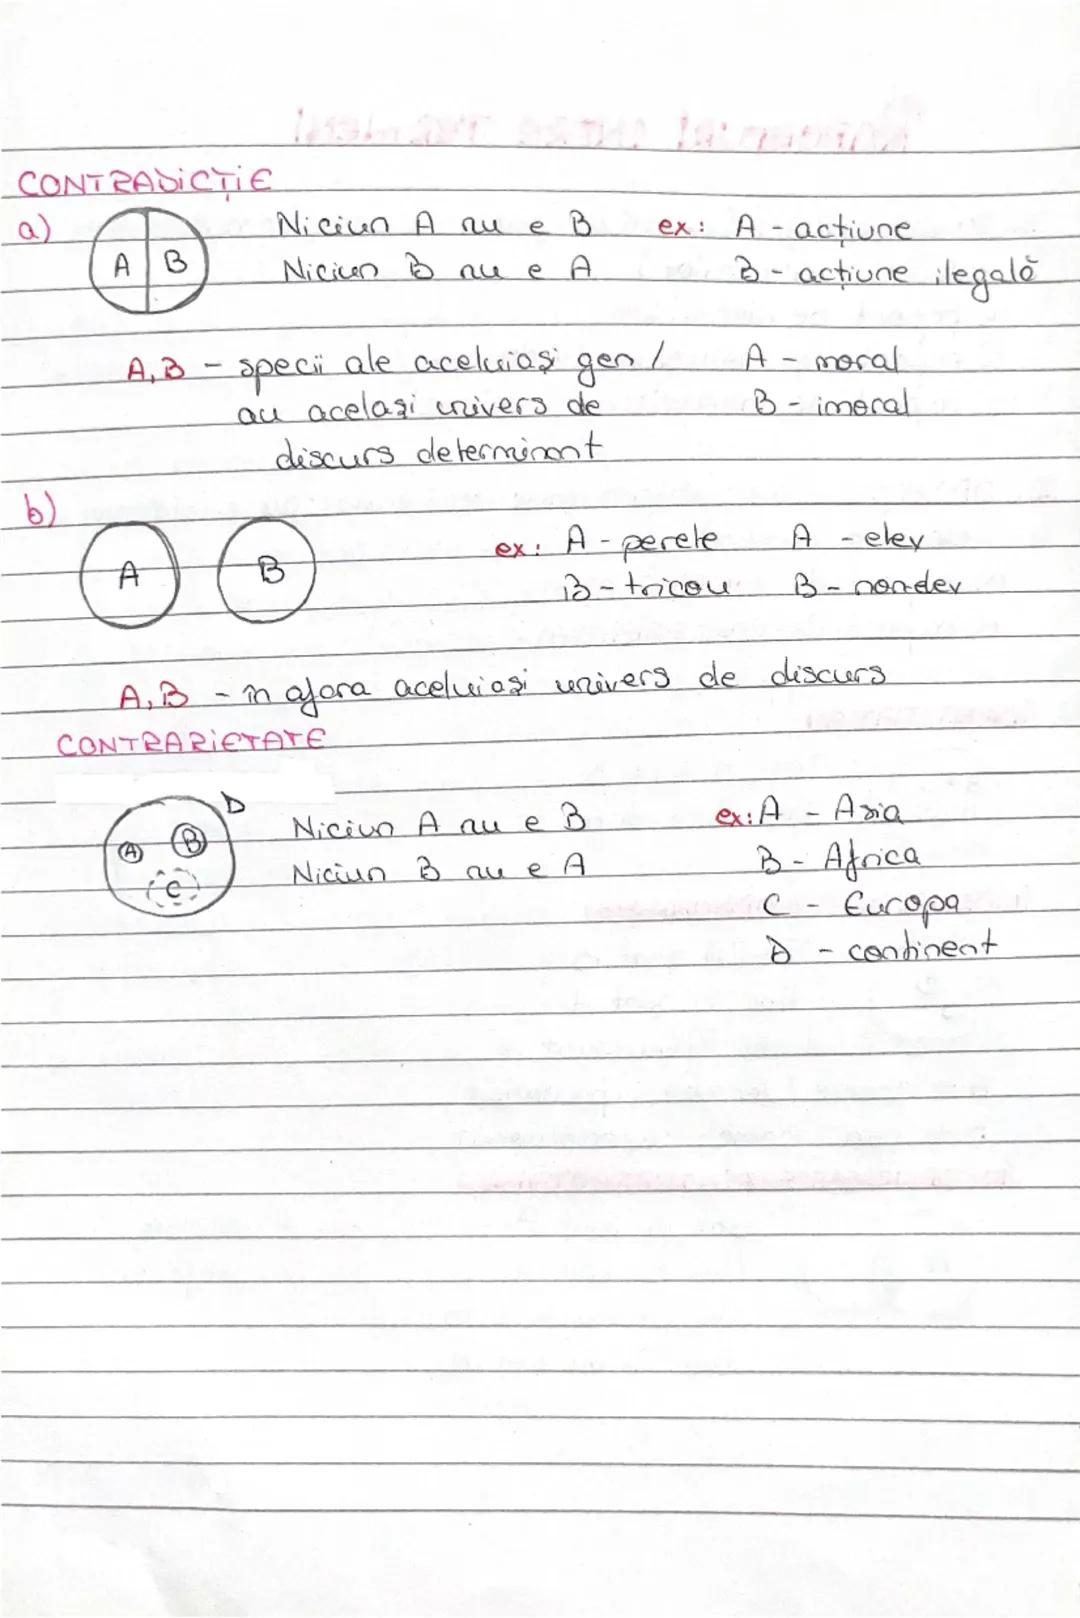 CONTRADICȚIE
a) A B Niciun A nu e B ex: A - acțiune
Niciun B nu e A B - acțiune ilegală
A, B - specii ale aceluiași gen / A - moral
au același univers de B - imoral
discurs determinant
b) A B ex: A - perete A - elev
B - tricou B - nonelev
A, B - în afara aceluiași univers de discurs
CONTRARIETATE
D
A B C Niciun A nu e B ex: A - Asia
Niciun B nu e A B - Africa
C - Europa
D - continent